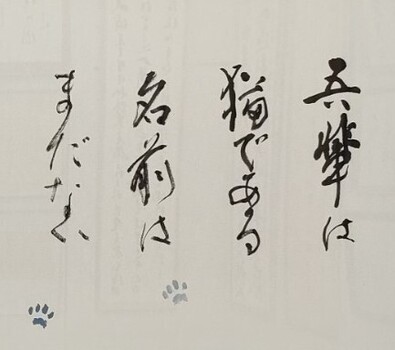 吾輩は
猫である
名前は
まだない